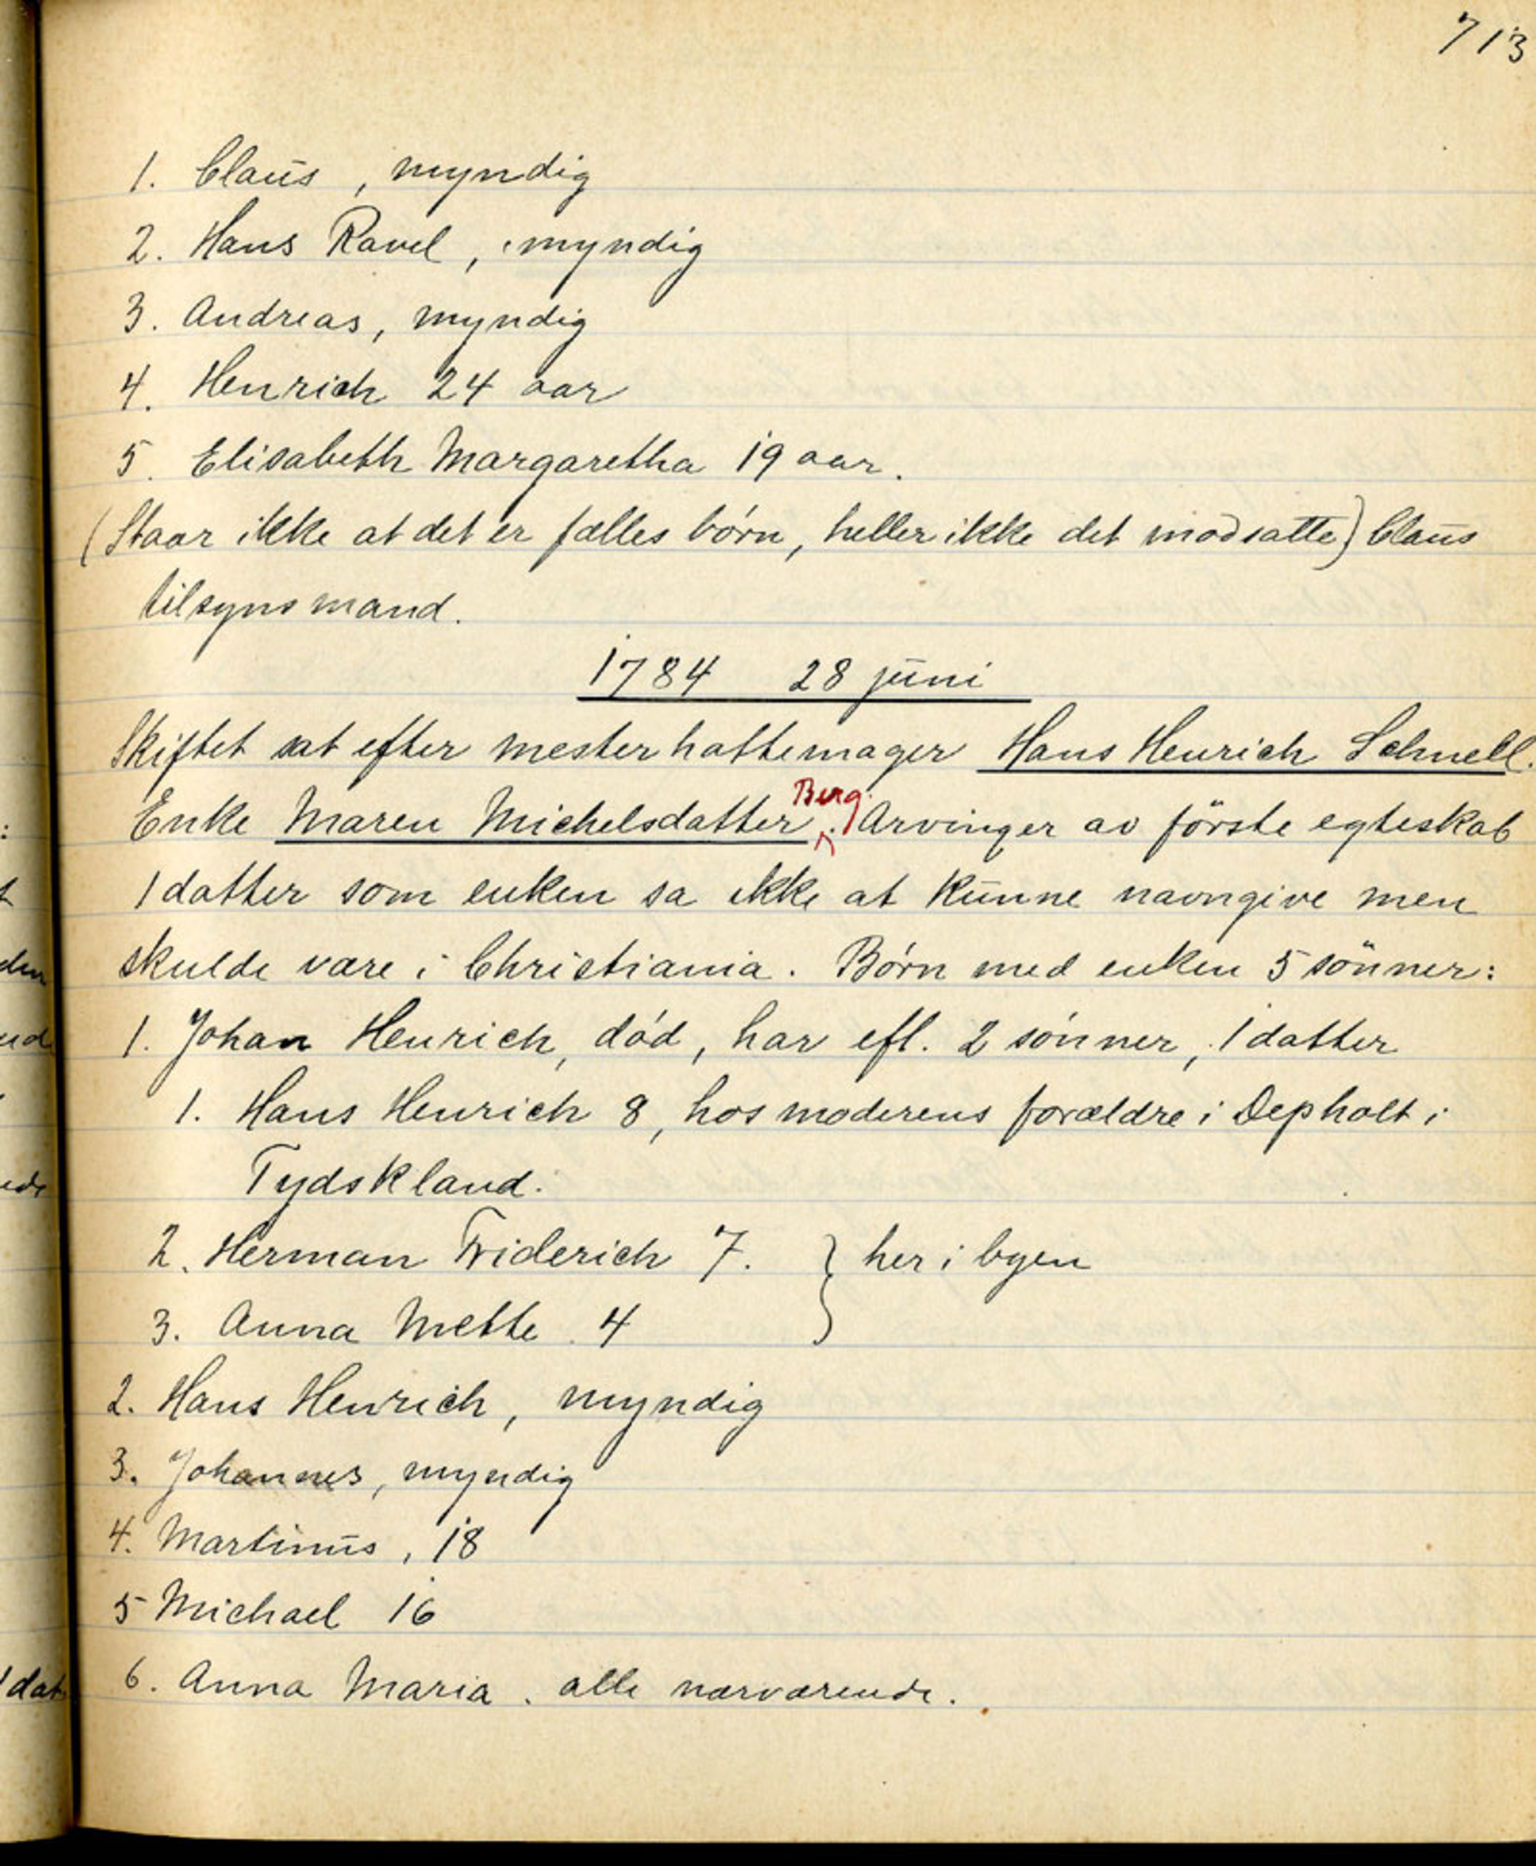 713
1. Claus, myndig
2. Hans Ravel, myndig
3. Andreas, myndig
4. Henrich 24 aar
5. Elisabeth Margaretha 19 aar.
(Staar ikke at det er fælles børn, heller ikke det modsatte) Claus
tilsynsmand.
1784 28 juni
Skiftet sat efter mester hattemager Hans Henrich Schnell.
Berg.
Enke Maren Michelsdatter. Arvinger av förste egteskab
1 datter som enken sa ikke at kunne navngive men
skulde være i Christiania. Børn med enken 5 sönner:
1. Johan Henrich, død, har efl. 2 sønner, 1 datter
1. Hans Henrich 8, hos moderens forældre i Depholt i
Tydskland.
2. Herman Friderich 7. } her i byen
3. Anna Mette 4
2. Hans Henrich, myndig
3. Johannes, myndig
4. Martinus, 18
5 Michael 16
6. Anna Maria. alle nærværende.